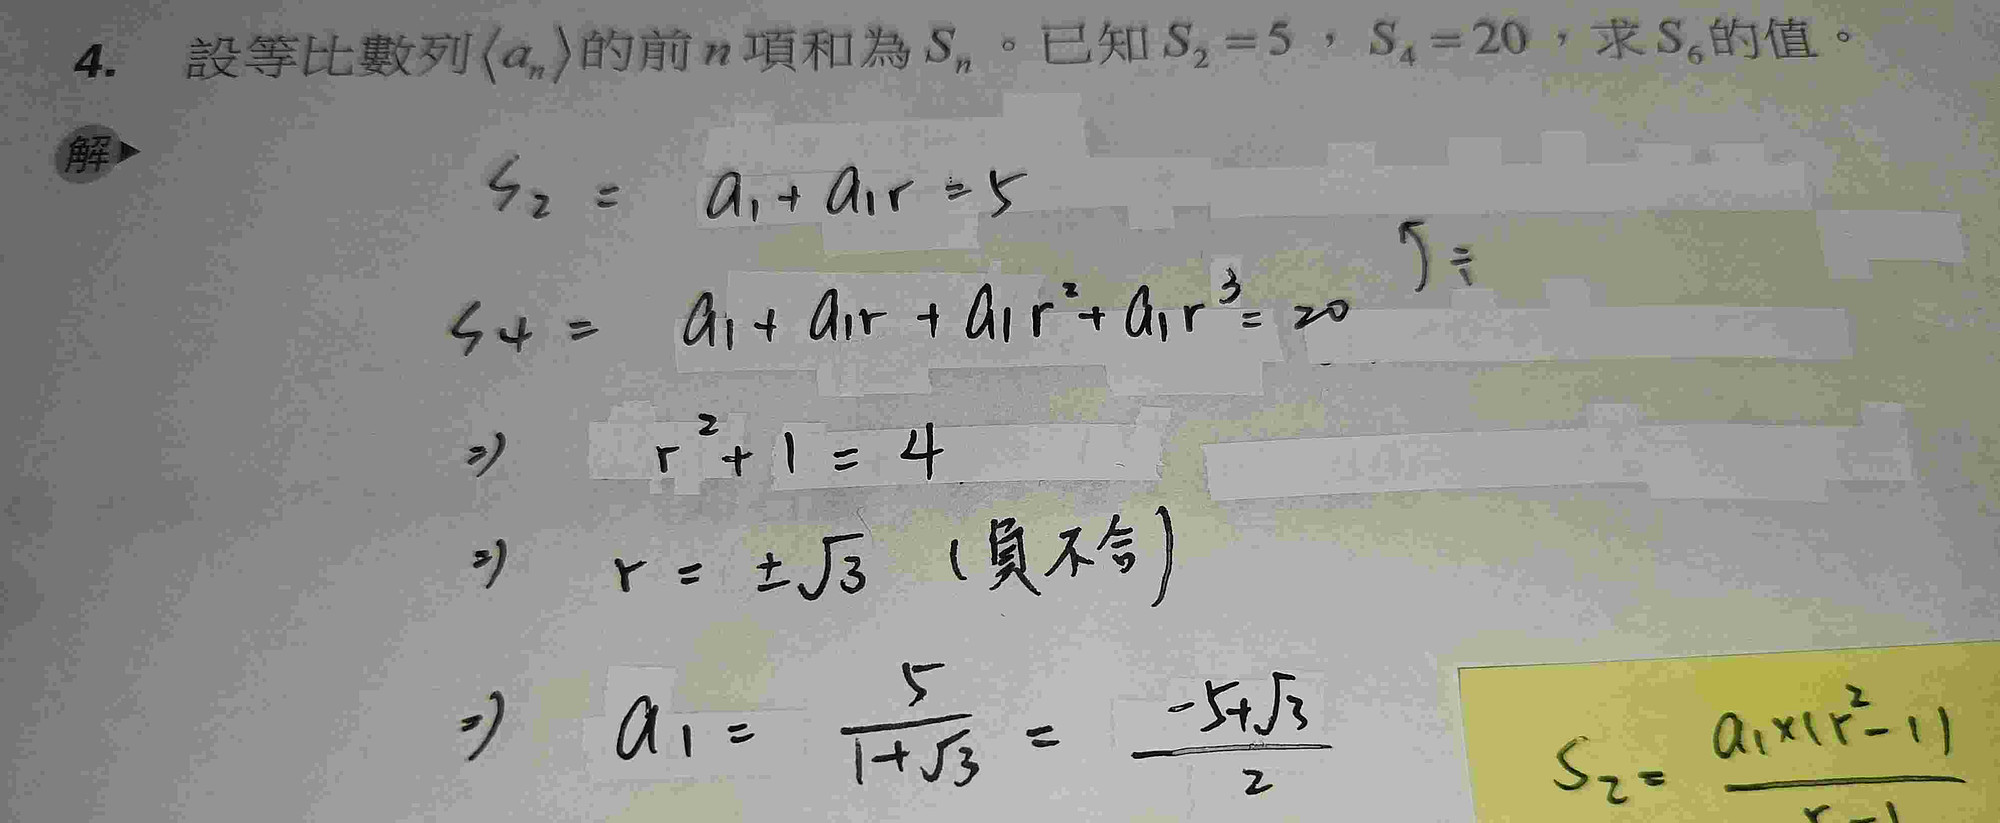 4. 設等比數列⟨aₙ⟩的前 n 項和為 Sₙ。已知 S₂ = 5，S₄ = 20，求 S₆ 的值。
解
S₂ = a₁ + a₁r = 5
÷
S₄ = a₁ + a₁r + a₁r² + a₁r³ = 20
⇒ r² + 1 = 4
⇒ r = ±√3 (負不合)
⇒ a₁ = 5/(1+√3) = (-5+√3)/2
S₂ = a₁×(r²-1)/(r-1)